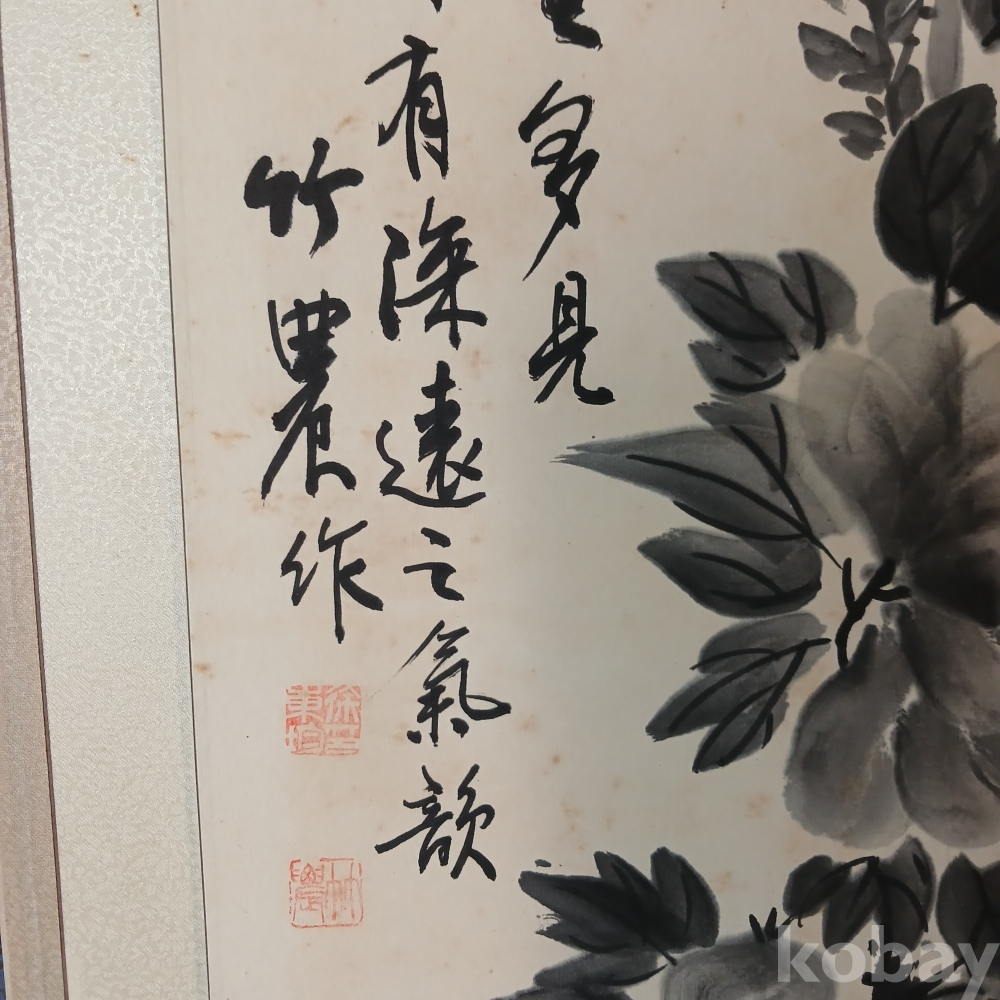 多見
有深遠之氣韻
竹農作
竹農
kobay